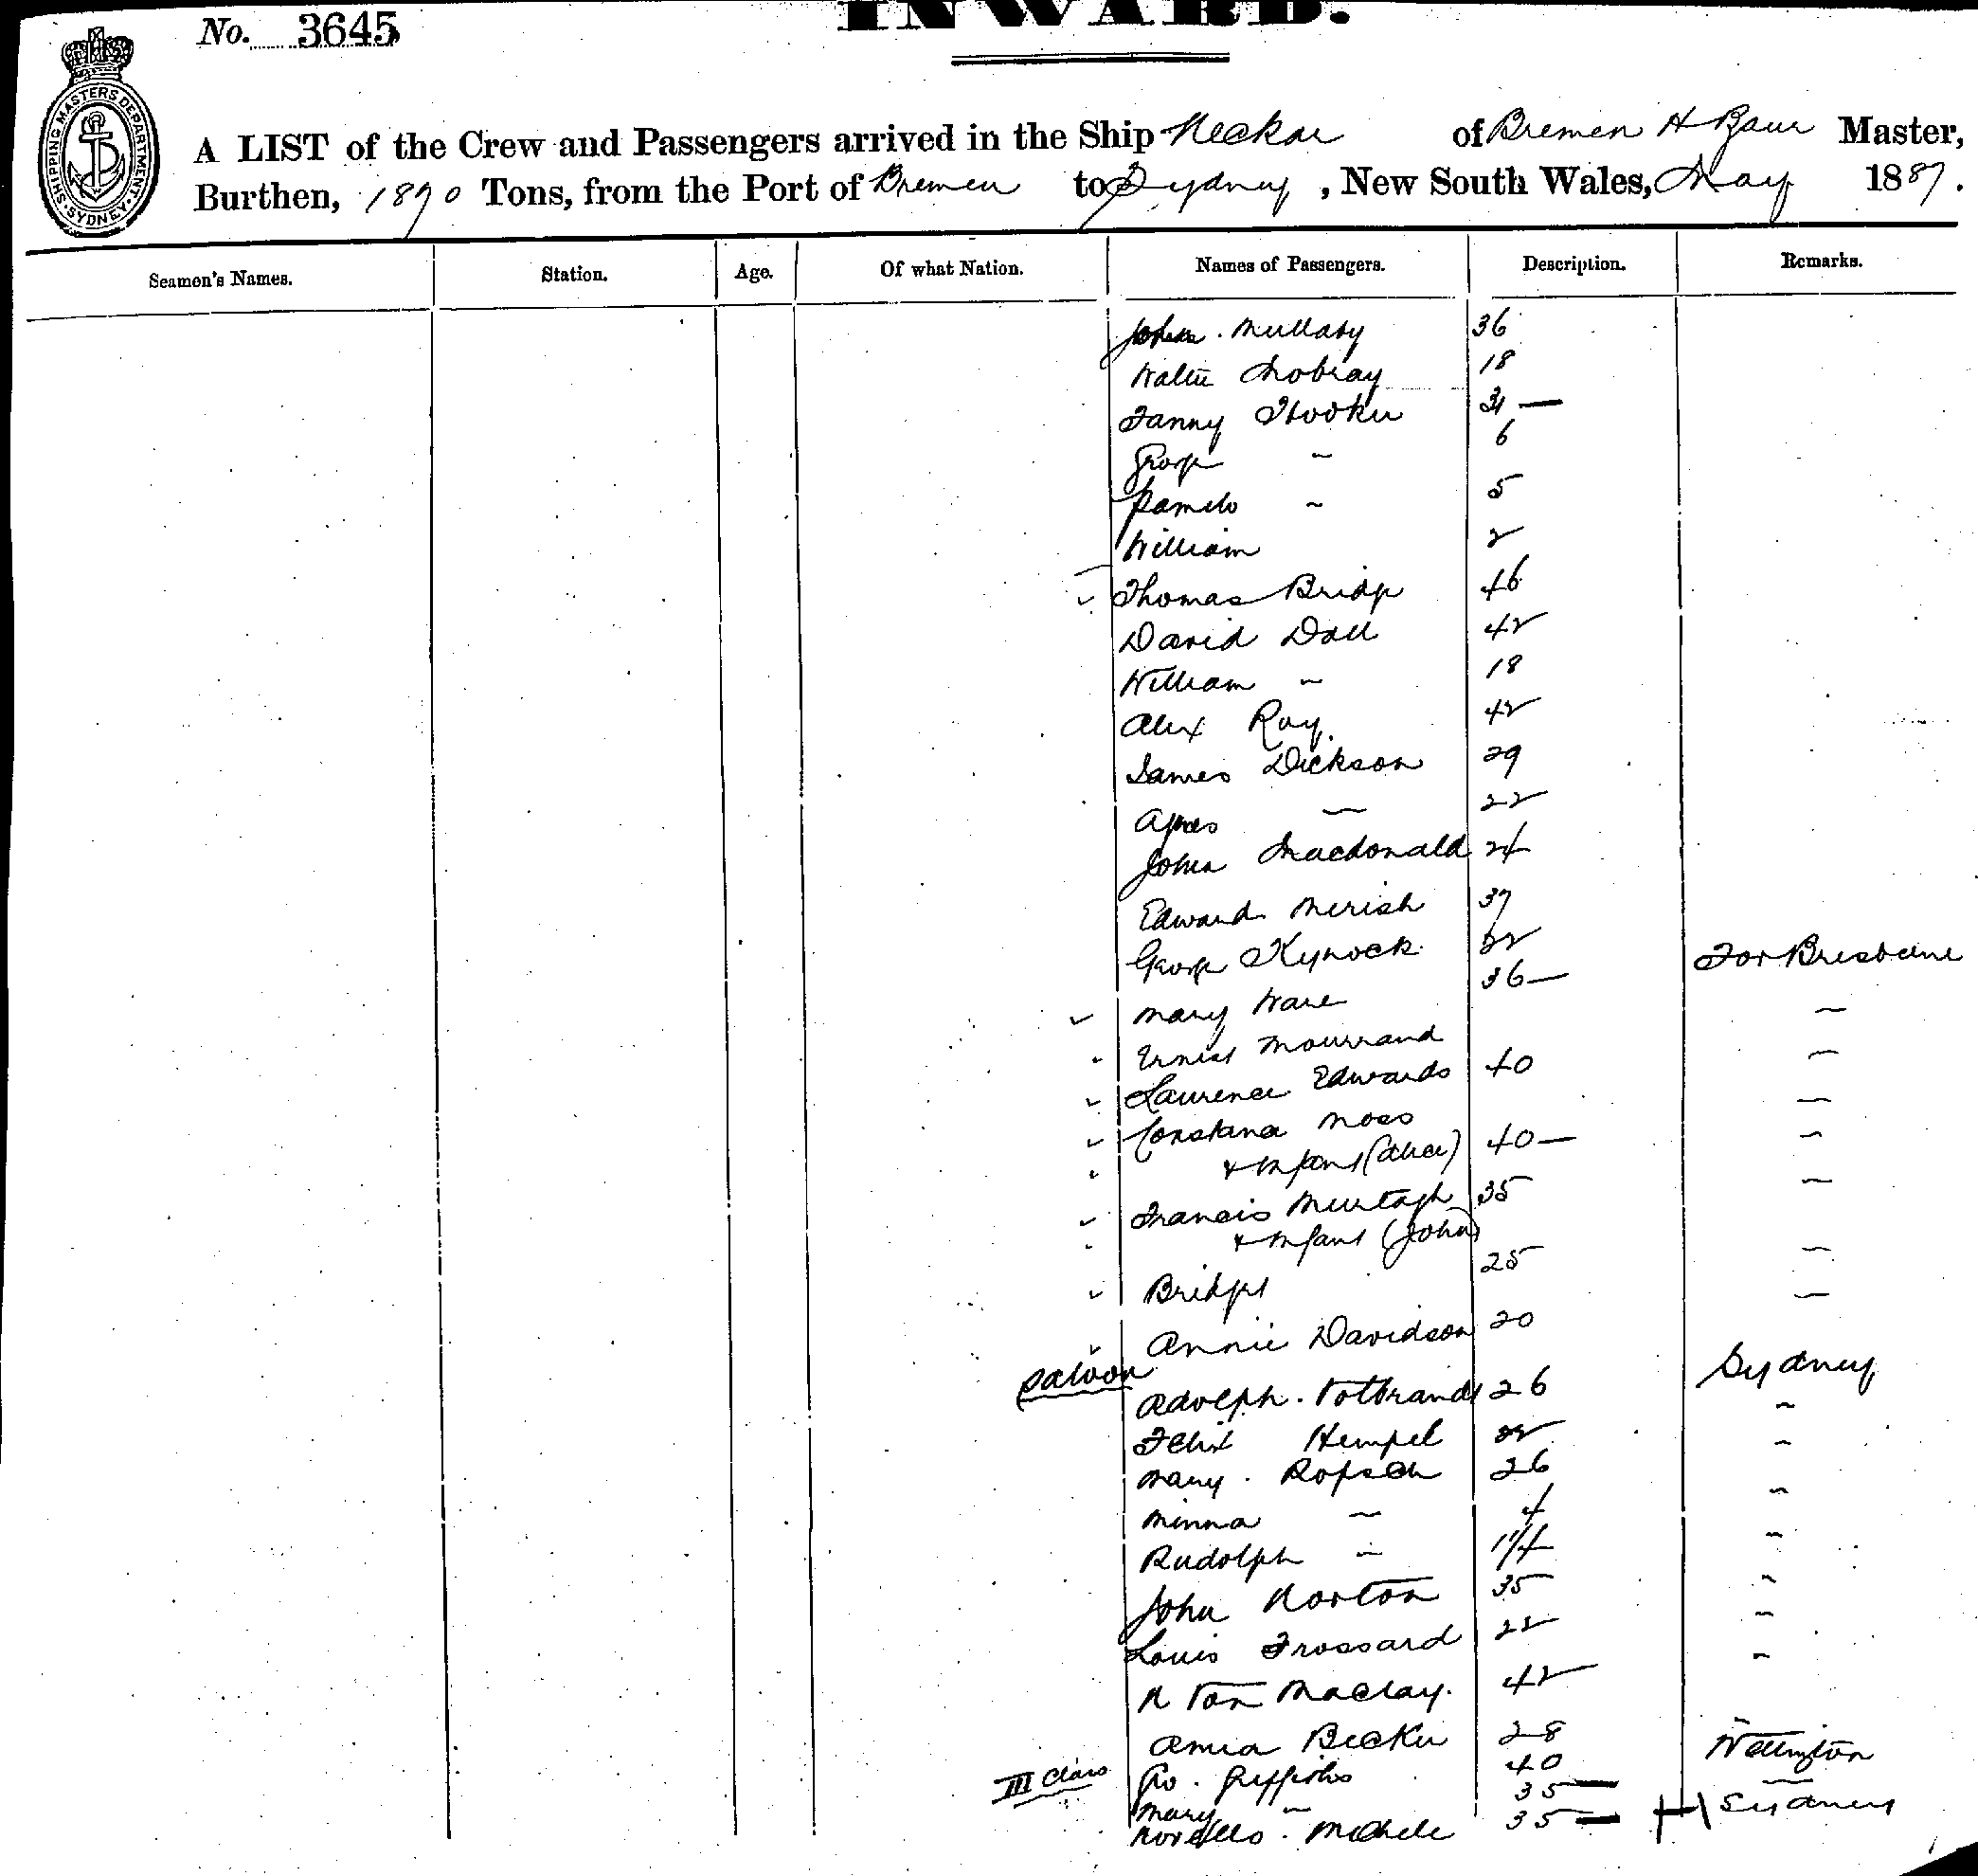 INWARD.
No. 3645
SHIPPING MASTERS DEPARTMENT SYDNEY
A LIST of the Crew and Passengers arrived in the Ship Neckar of Bremen H Baur Master,
Burthen, 1870 Tons, from the Port of Bremen to Sydney, New South Wales, May 1887.
Seamen's Names. Station. Age. Of what Nation. Names of Passengers. Description. Remarks.
John. Mullaby 36
Walter Mobray 18
Fanny Hooker 31 —
George ~ 6
5
William 2
Thomas Bridge 46
David Doll 42
William ~ 18
Alex Roy. 42
James Dickson 29
Agnes ~ 22
John Macdonald 24
Edward Merish 37
George Kynock 22 For Brisbane
Mary Ware 36 — ~
Ernest Mourrand ~
Laurence Edwards 40 ~
Constance Moss ~
& Infant (Alice) 40 —
Francis Murtagh 35 ~
& Infant (John)
Bridget 25 ~
Annie Davidson 20 ~
Saloon Adolph. Votbrandt 26 Sydney
Felix Hempel 22 ~
Mary. Ropsch 26 ~
Minna ~ 4 ~
Rudolph ~ 1 1/4 ~
John Norton 35 ~
Louis Frossard 22 ~
N Von Maclay. 42 ~
Anna Becker 28 ~
III Class Geo. Griffiths 40 Wellington
Mary ~ 35 — ~
Michele 35 — Sydney